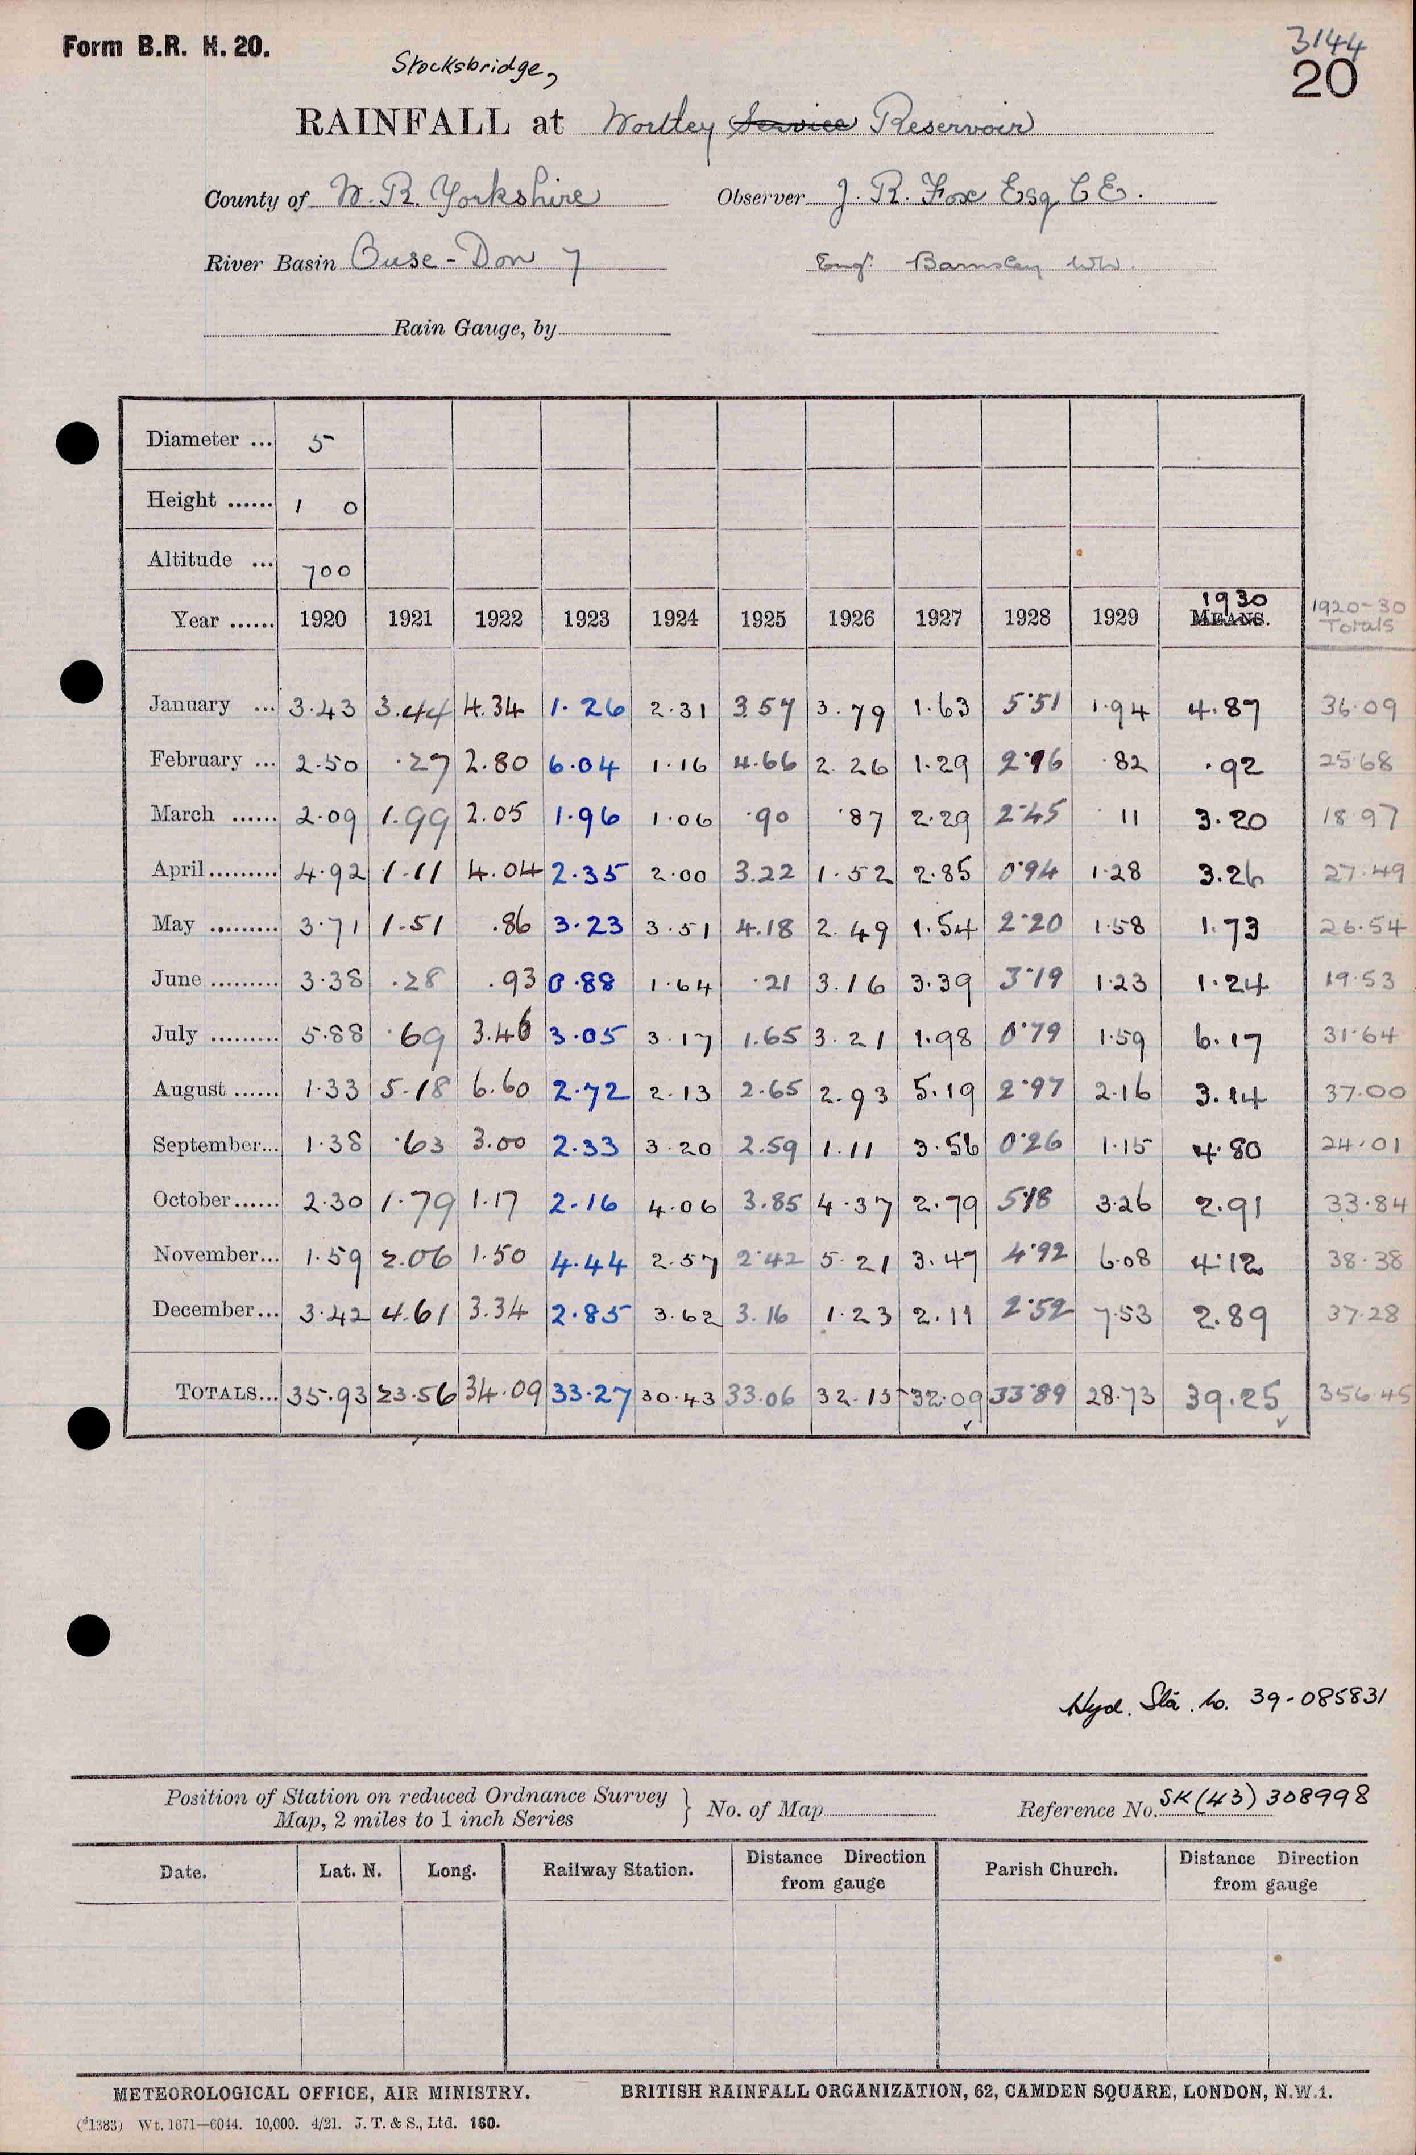 Form B.R. H. 20.
3144
20
Stocksbridge,
RAINFALL at Wortley Service Reservoir
County of W. R. Yorkshire Observer J. R. Fox Esq C E.
River Basin Ouse - Don 7 Engr. Barnsley WW.
Rain Gauge, by
Diameter ... 5
Height ...... 1 0
Altitude ... 700
Year ...... 1920 1921 1922 1923 1924 1925 1926 1927 1928 1929 MEANS. 1930 1920-30 Totals
January ... 3.43 3.44 4.34 1.26 2.31 3.57 3.79 1.63 5.51 1.94 4.87 36.09
February ... 2.50 .27 2.80 6.04 1.16 4.66 2.26 1.29 2.96 .82 .92 25.68
March ...... 2.09 1.99 2.05 1.96 1.06 .90 .87 2.29 2.45 .11 3.20 18.97
April......... 4.92 1.11 4.04 2.35 2.00 3.22 1.52 2.85 0.94 1.28 3.26 27.49
May ......... 3.71 1.51 .86 3.23 3.51 4.18 2.49 1.54 2.20 1.58 1.73 26.54
June ......... 3.38 .28 .93 0.88 1.64 .21 3.16 3.39 3.19 1.23 1.24 19.53
July ......... 5.88 .69 3.46 3.05 3.17 1.65 3.21 1.98 0.79 1.59 6.17 31.64
August ...... 1.33 5.18 6.60 2.72 2.13 2.65 2.93 5.19 2.97 2.16 3.14 37.00
September... 1.38 .63 3.00 2.33 3.20 2.59 1.11 3.56 0.26 1.15 4.80 24.01
October...... 2.30 1.79 1.17 2.16 4.06 3.85 4.37 2.79 5.18 3.26 2.91 33.84
November... 1.59 2.06 1.50 4.44 2.57 2.42 5.21 3.47 4.92 6.08 4.12 38.38
December... 3.42 4.61 3.34 2.85 3.62 3.16 1.23 2.11 2.52 7.53 2.89 37.28
TOTALS... 35.93 23.56 34.09 33.27 30.43 33.06 32.15 32.09 33.89 28.73 39.25 356.45
Hyd. Sta. No. 39-085831
Position of Station on reduced Ordnance Survey
Map, 2 miles to 1 inch Series } No. of Map Reference No. SK (43) 308998
Date. Lat. N. Long. Railway Station. Distance Direction from gauge Parish Church. Distance Direction from gauge
METEOROLOGICAL OFFICE, AIR MINISTRY. BRITISH RAINFALL ORGANIZATION, 62, CAMDEN SQUARE, LONDON, N.W.1.
(d1383) Wt. 1671—6044. 10,000. 4/21. J. T. & S., Ltd. 160.